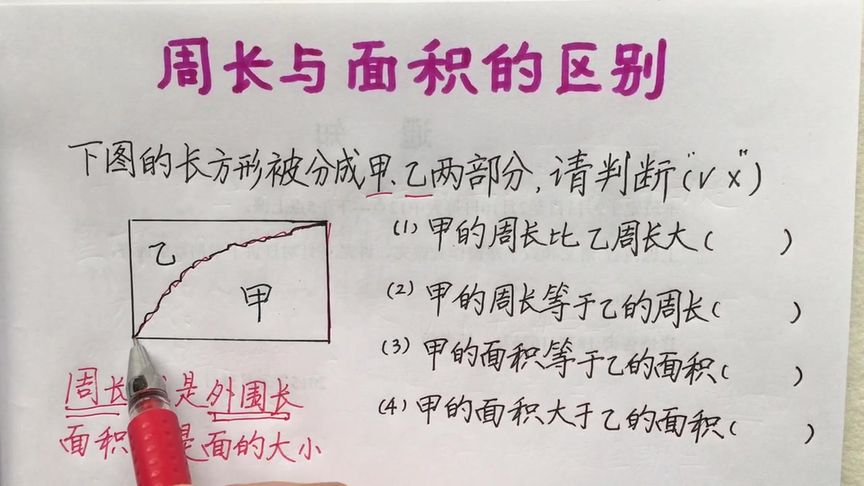 周长与面积的区别
下图的长方形被分成甲、乙两部分,请判断“√ ×”)
乙
甲
(1) 甲的周长比乙周长大( )
(2) 甲的周长等于乙的周长( )
(3) 甲的面积等于乙的面积( )
(4) 甲的面积大于乙的面积( )
周长 是外围长
面积 是面的大小